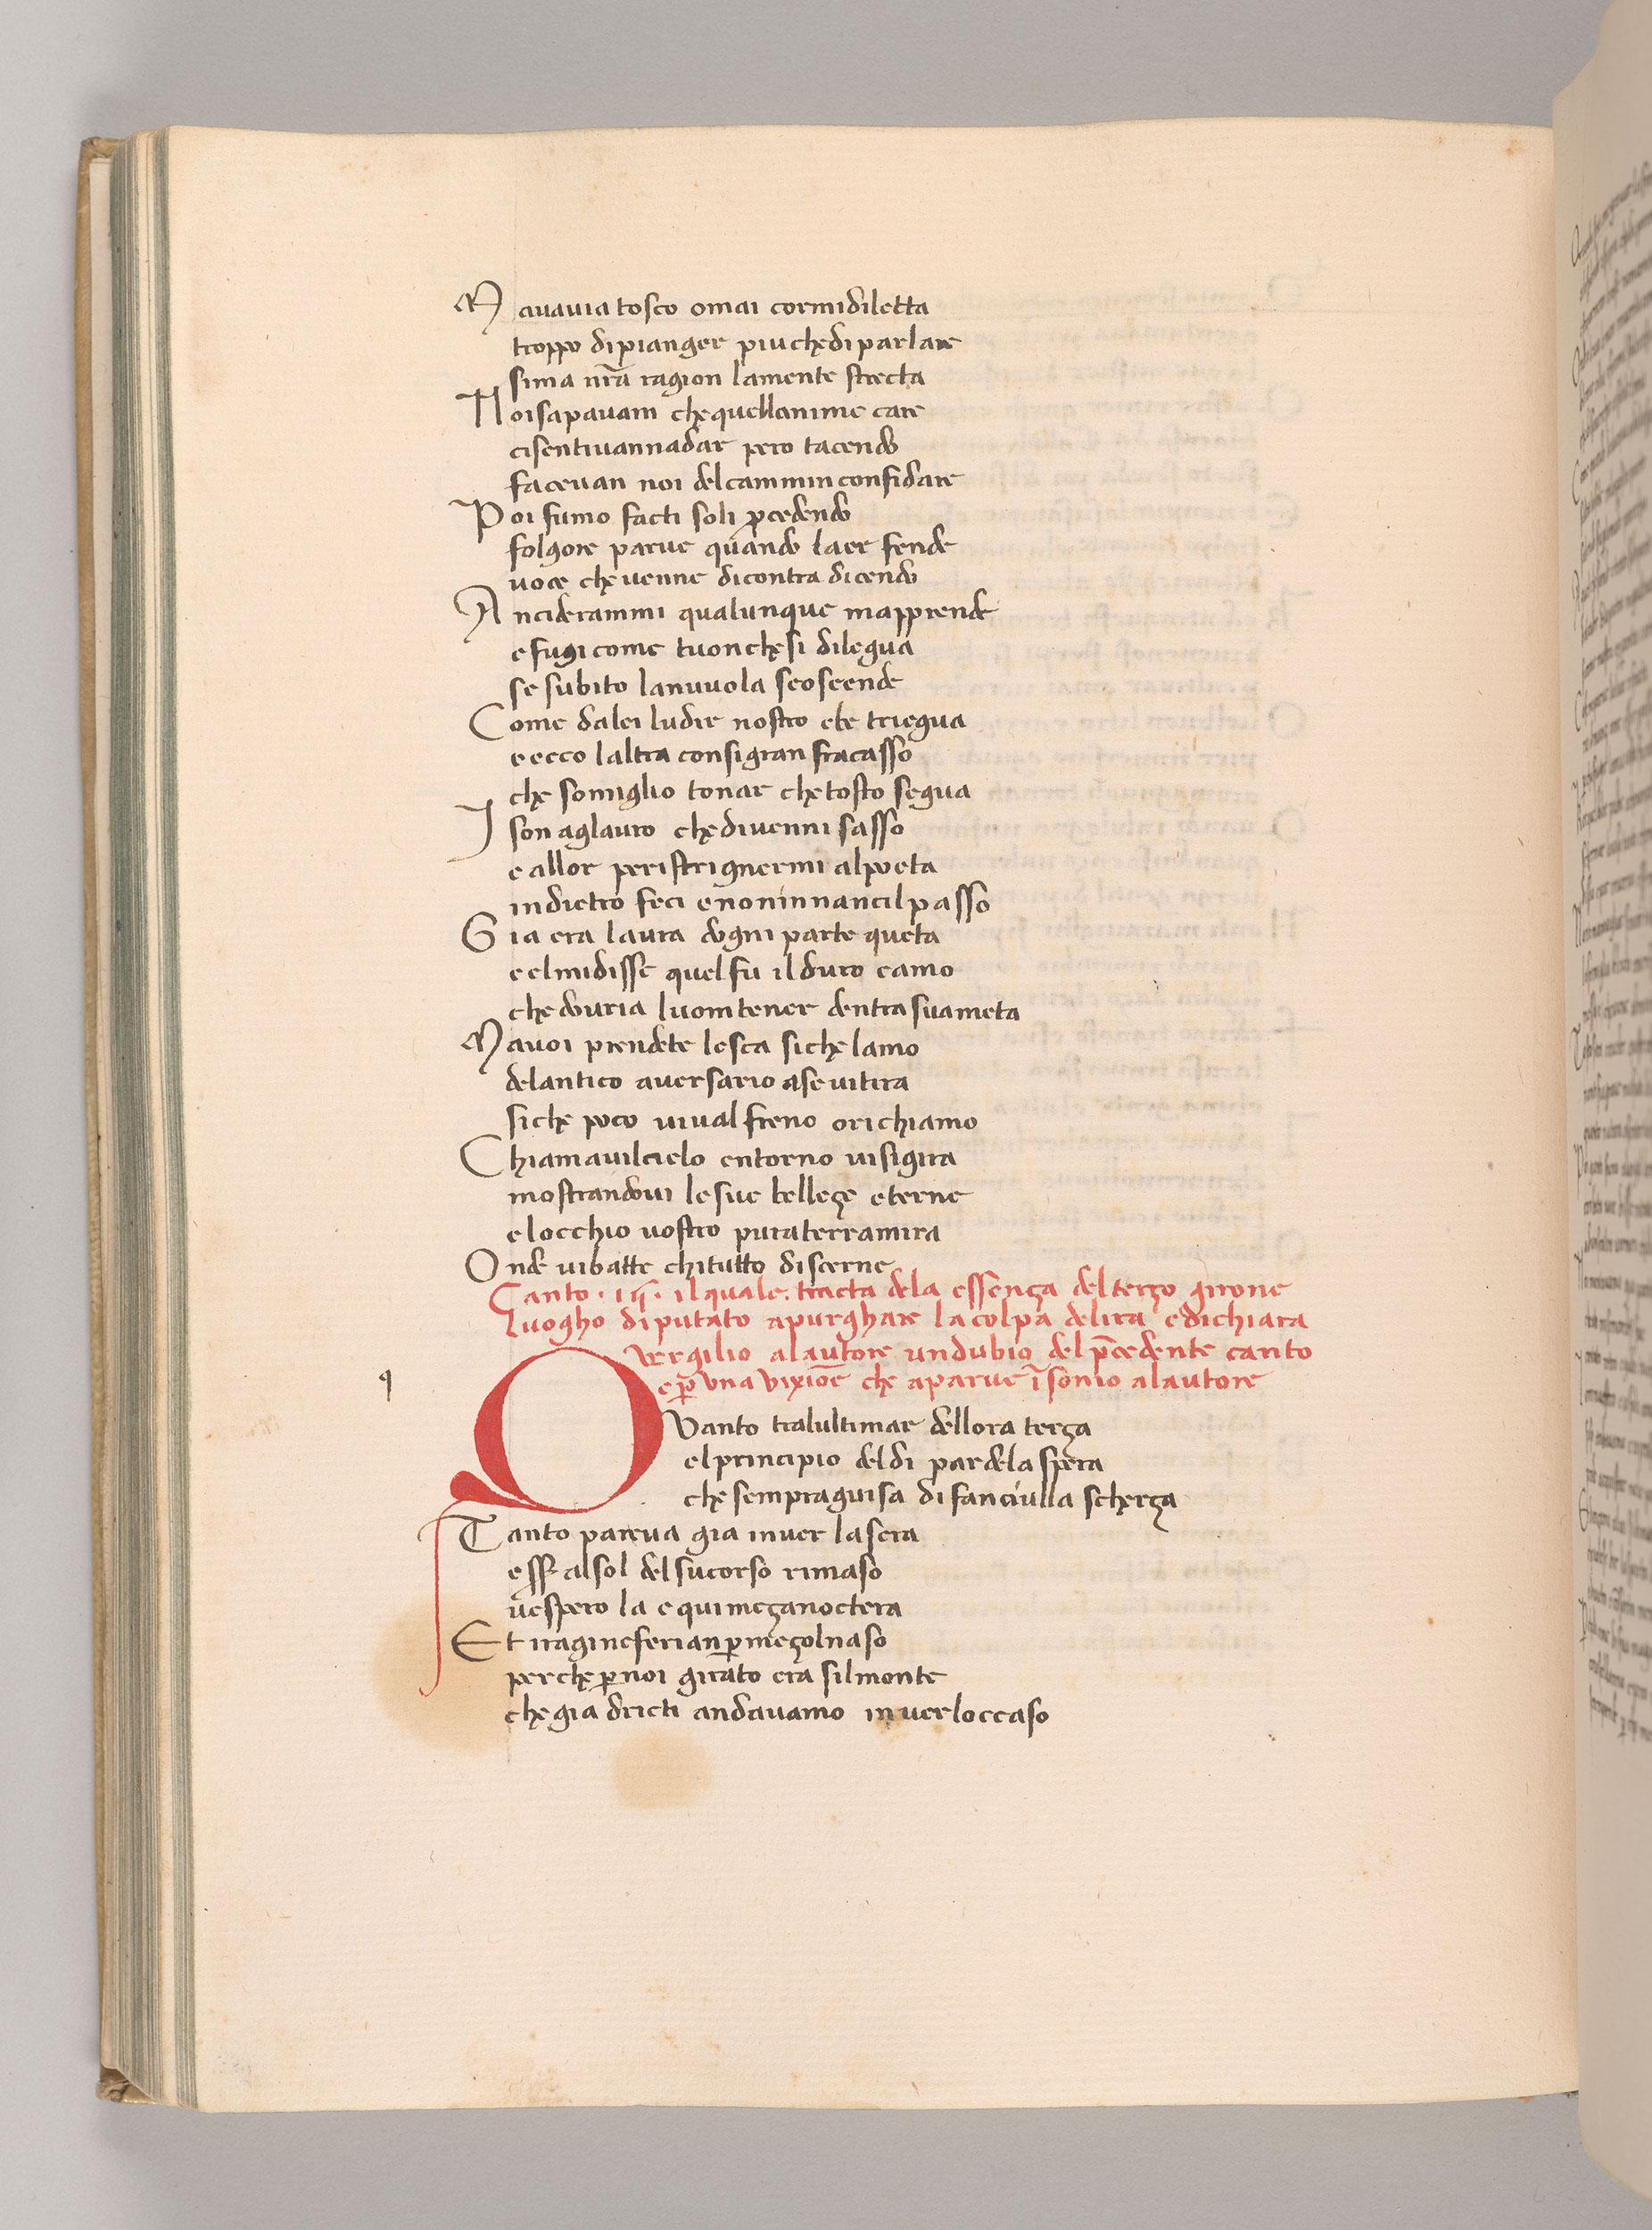 M avavia tosco omai cormidiletta
troppo dipianger piuchedi parlare
sima nr̄a ragion lamente strecta
N oisapavam chequellanime care
cisentivannadar pero tacendo
facevan noi delcammin confidare
P oi fumo facti soli ꝓcedendo
folgore parve quando laer fende
voce che venne dicontra dicendo
A nciderammi qualunque mapprende
e fugi come tuonchesi dilegua
se subito lanuvola scoscende
C ome dalei ludir nostro ebe triegua
e ecco laltra consigran fracasso
che somiglio tonar che tosto segua
I son aglauro che divenni sasso
e allor peristrignermi alpoeta
indietro feci enoninnancilpasso
G ia era laura dogni parte queta
e elmidisse quel fu il duro camo
che douria luomtener dentra suameta
M avoi prendete lesca siche lamo
delantico aversario asevitira
siche poco vival freno orichiamo
C hiamavilcielo entorno visigira
mostrandovi lesue belleçe eterne
elocchio vostro puraterramira
O nde vibatte chitutto discerne
Canto · ilquale · tracta dela essença delterço girone
Luogho diputato apurghare lacolpa delira edichiara
vergilio alautore undubio del p̄cedente canto
eꝑ una vixiōe che aparve ī somno alautore
q
Q Vanto tralultimar dellora terça
elprincipio deldi par dela spera
che sempraguisa di fanciulla scherça
T anto pareva gia inver lasera
esser alsol delsucorso rimaso
vespero la e quimeçanoctera
E t iragineferianꝑmeçolnaso
perche ꝑnoi girato era silmonte
chegia dricti andavamo inverloccaso